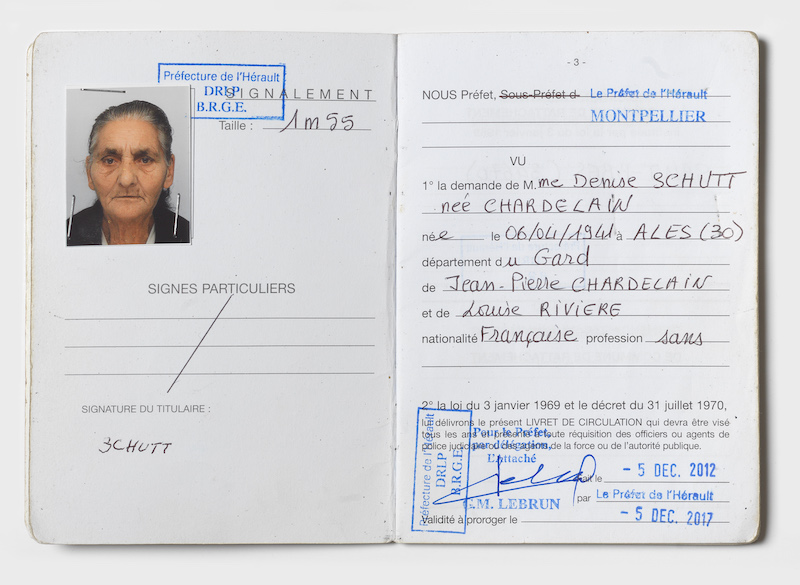 Préfecture de l'Hérault
DRLP
B.R.G.E.
SIGNALEMENT
Taille : 1m55
SIGNES PARTICULIERS
SIGNATURE DU TITULAIRE :
SCHUTT
- 3 -
NOUS Préfet, Sous-Préfet d Le Préfet de l'Hérault
MONTPELLIER
VU
1° la demande de M.me Denise SCHUTT
neé CHARDELAIN
née le 06/04/1941 à ALES (30)
département du Gard
de Jean-Pierre CHARDELAIN
et de Louise RIVIERE
nationalité Française profession sans
2° la loi du 3 janvier 1969 et le décret du 31 juillet 1970,
lui délivrons le présent LIVRET DE CIRCULATION qui devra être visé
tous les ans et présenté à toute réquisition des officiers ou agents de
police judiciaire ou des agents de la force ou de l'autorité publique.
Préfecture de l'Hérault
DRLP
B.R.G.E.
Pour le Préfet,
par délégation,
L'attaché
G.M. LEBRUN
Fait le - 5 DEC. 2012
par Le Préfet de l'Hérault
Validité à proroger le - 5 DEC. 2017